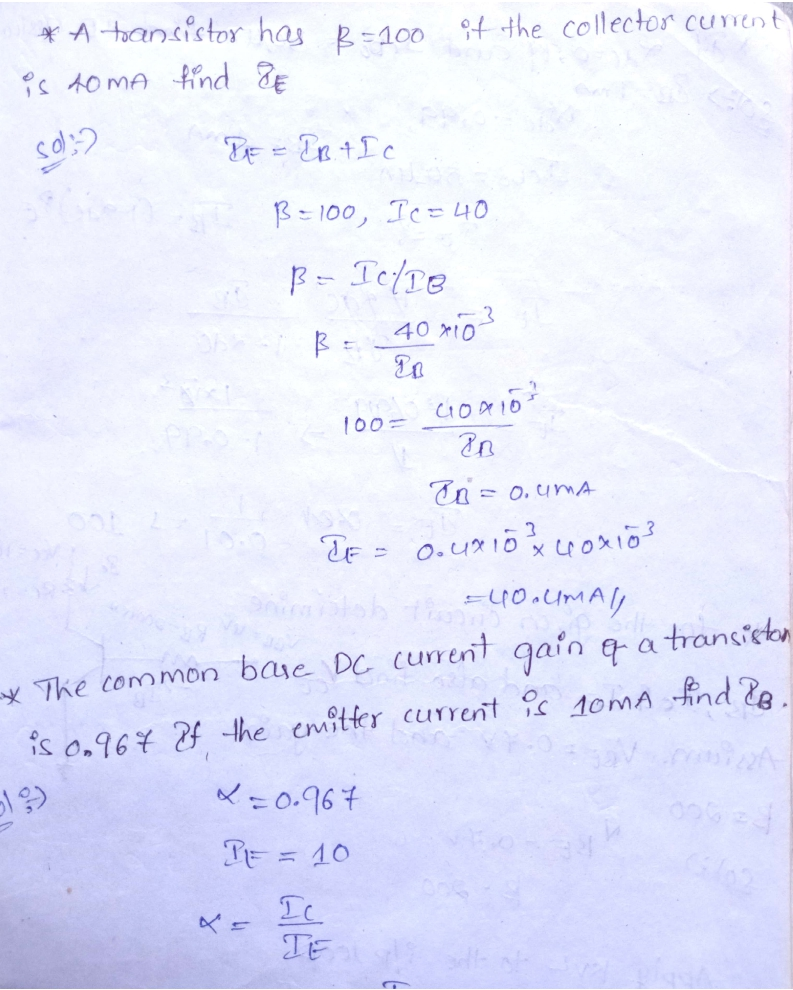 * A transistor has β=100 if the collector current
is 40mA find IE
sol:-)
IE = IB + IC
β=100, IC = 40
β = IC/IB
β = 40 x10^-3 / IB
100 = 40x10^-3 / IB
IB = 0.4mA
IE = 0.4x10^-3 x 40x10^-3
=40.4mA//
* The common base DC current gain of a transistor
is 0.967 If the emitter current is 10mA find IB.
α = 0.967
IE = 10
α = IC / IE